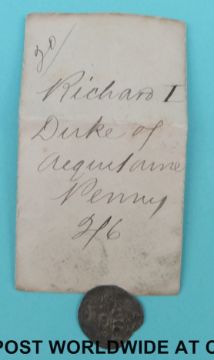 30/
Richard I
Duke of
Aequitaine
Penny
2/6
POST WORLDWIDE AT C